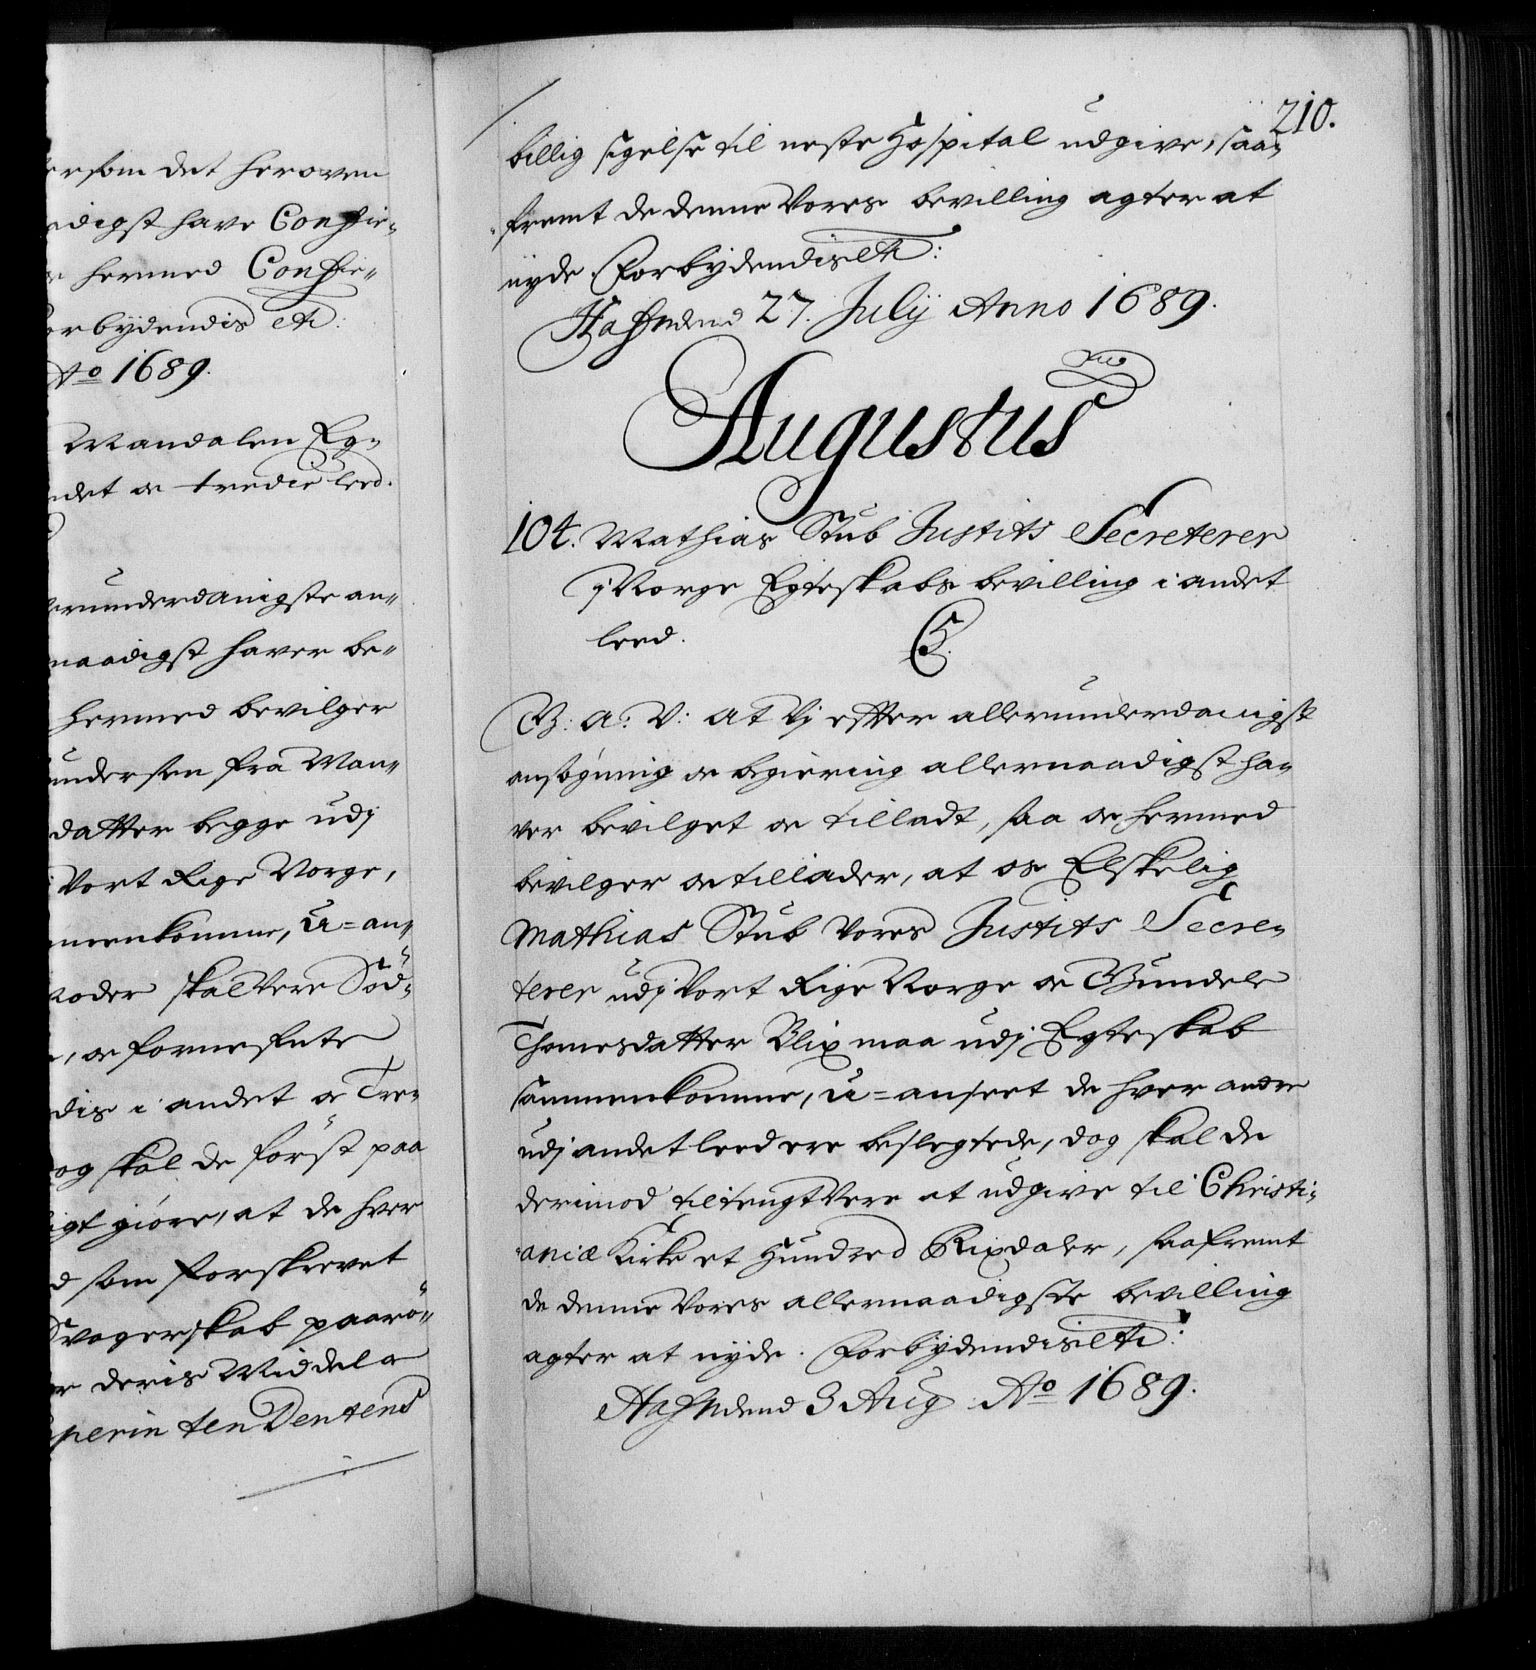 ersom det heroven
adigst have Confir¬
hermed Confir¬
orbydendis etc:
Ao 1689.
Mandalen Eg¬
ndet oc tredie leed.
erunderdanigste an¬
naadigst haver be¬
hermed bevilger
undersen fra Man¬
datter begge udj
Vort Rige Norge,
menkomme, u=an¬
Moder skal vere Sød¬
, oc fornefnte
dis i andet oc Tre¬
og skal de först paa
igt giöre, at de hver
d som forskrevet
Svogerskab paarö¬
er deris Middel oc
perintendentens
210.
billig sigelse til neste Hospital udgive, saa¬
fremt de denne Vores bevilling agter at
nyde. Forbydendis etc:
Hafn den 27. Julij Anno 1689.
Augustus
104. Mathias Stub Justits Secreterer
j Norge Egteskabs bevilling i andet
leed.
G. A. V: at Vj efter allerunderdanigst
ansögning oc begiering allernaadigst ha¬
ver bevilget oc tilladt, saa oc hermed
bevilger oc tillader, at os Elskelig
Mathias Stub Vores Justits Secre¬
terer udj Vort Rige Norge oc Gundele
Thomesdatter Blix maa udj Egteskab
sammenkomme, u=anseet de hver andre
udj andet leed ere beslegtede, dog skal de
derimod tiltengt Vere at udgive til Christi¬
aniæ Kirke et Hundred Rixdaler, saafremt
de denne Vores allernaadigste bevilling
agter at nyde. Forbydendis etc:
Hafn den 3 Aug Ao 1689.